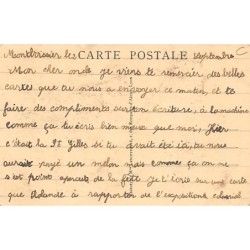 Montbrison les CARTE POSTALE septembre
Mon cher oncle je viens te remercier des belles
cartes que tu nous a envoyer ce matin et te
faire des compliments sur ton écriture, à la machine
comme ça tu écris bien mieux que moi, Hier
c'était la St Gilles si tu avait été ici, tu nous
aurait payé un melon mais comme ça on ne
s'est point aperçuts de la fête. Je t'écris sur une carte
que Rolande à rapporter de l'expositions colonial